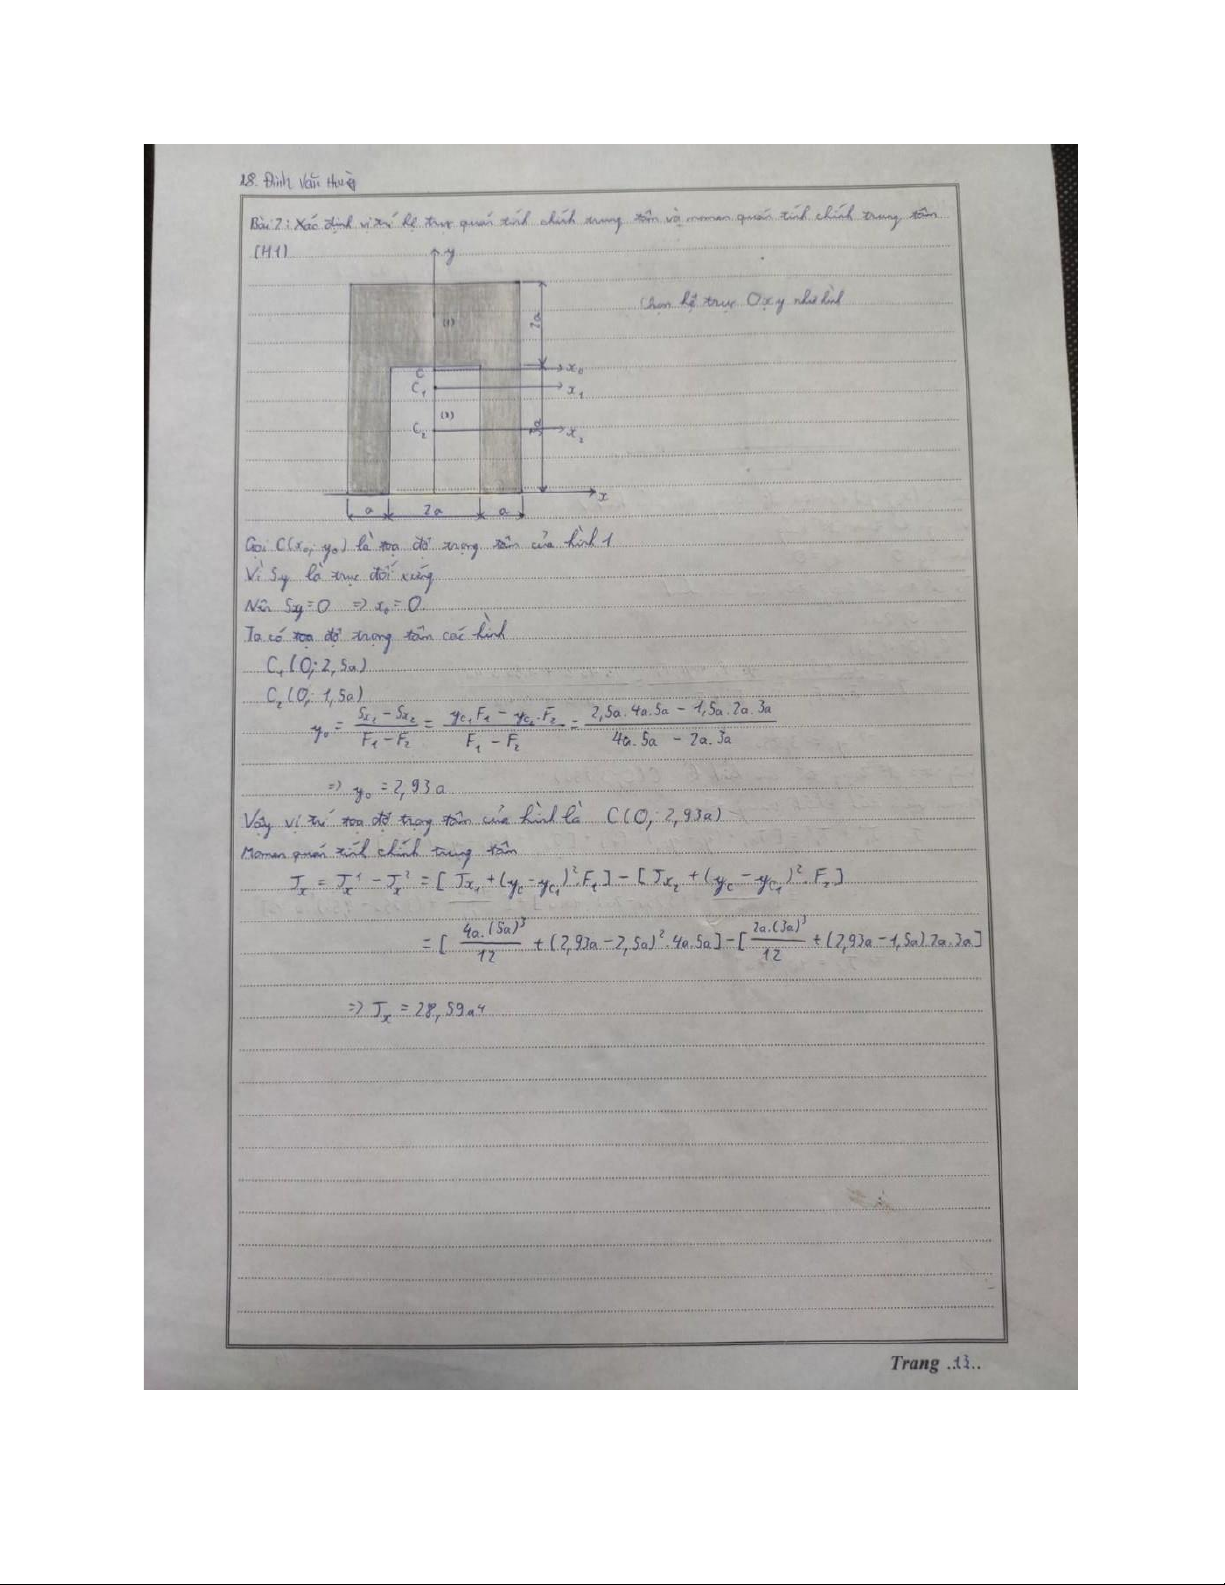 28. Đinh Văn
Bài 2: Xác định vị trí hệ trục quán tính chính trung tâm và momen quán tính chính trung tâm
(H1)
y
Chọn hệ trục Oxy như hình
(1)
2a
C x₀
C₁ x₁
(2)
3a
C₂ x₂
x
a 2a a
Gọi C(x₀; y₀) là toạ độ trọng tâm của hình 1
Vì Sy là trục đối xứng
Nên Sy = 0 => x₀ = 0.
Ta có toạ độ trọng tâm các hình
C₁(0; 2,5a)
C₂(0; 1,5a)
y₀ = (Sx₁ - Sx₂)/(F₁ - F₂) = (yc₁.F₁ - yc₂.F₂)/(F₁ - F₂) = (2,5a.4a.5a - 1,5a.2a.3a)/(4a.5a - 2a.3a)
=> y₀ = 2,93a
Vậy vị trí toạ độ trọng tâm của hình là C(0; 2,93a)
Momen quán tính chính trung tâm
Jx = Jx¹ - Jx² = [Jx₁ + (yc - yc₁)².F₁] - [Jx₂ + (yc - yc₁)².F₂]
= [4a.(5a)³/12 + (2,93a - 2,5a)².4a.5a] - [2a.(3a)³/12 + (2,93a - 1,5a).2a.3a]
=> Jx = 28,59a⁴
Trang ..13..